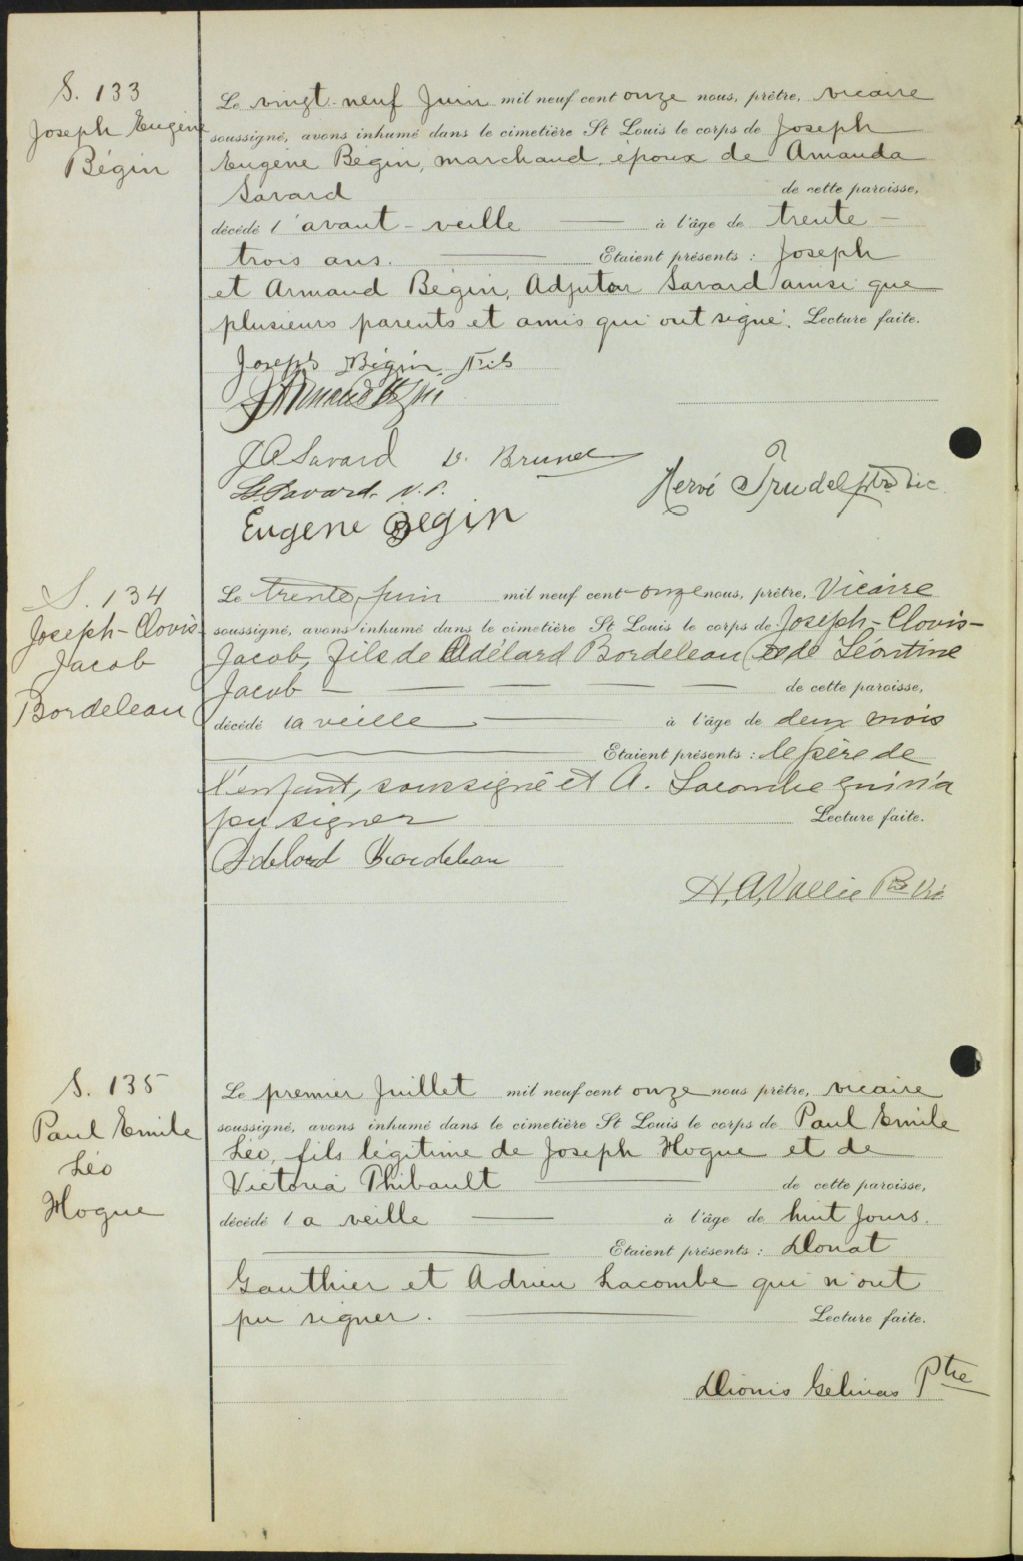 S. 133
Joseph Eugène
Bégin
Le vingt-neuf Juin mil neuf cent onze nous, prêtre, vicaire
soussigné, avons inhumé dans le cimetière St Louis le corps de Joseph
Eugène Bégin, marchand, époux de Amanda
Savard de cette paroisse,
décédé l'avant-veille à l'âge de trente-
trois ans. Etaient présents : Joseph
et Armand Bégin, Adjutor Savard ainsi que
plusieurs parents et amis qui ont signé. Lecture faite.
Joseph Bégin, Fils
Armand Bégin
J A Savard D. Brunel
Savard. N.P.
Hervé Trudel ptre Vic
Eugene Begin
S. 134
Joseph-Clovis
Jacob
Bordeleau
Le trente, juin mil neuf cent onze nous, prêtre, Vicaire
soussigné, avons inhumé dans le cimetière St Louis le corps de Joseph-Clovis-
Jacob, fils de Adélard Bordeleau & de Léontine
Jacob de cette paroisse,
décédé la veille à l'âge de deux mois
Etaient présents : le père de
l'enfant, soussigné et A. Lacombe qui n'a
pu signer Lecture faite.
Adelord Bordeleau
H, A, Vallée Ptre Vic
S. 135
Paul Emile
Léo
Hogue
Le premier Juillet mil neuf cent onze nous prêtre, vicaire
soussigné, avons inhumé dans le cimetière St Louis le corps de Paul Emile
Léo, fils légitime de Joseph Hogue et de
Victoria Thibault de cette paroisse,
décédé la veille à l'âge de huit jours.
Etaient présents : Donat
Gauthier et Adrien Lacombe qui n'ont
pu signer. Lecture faite.
Dionis Gélinas Ptre